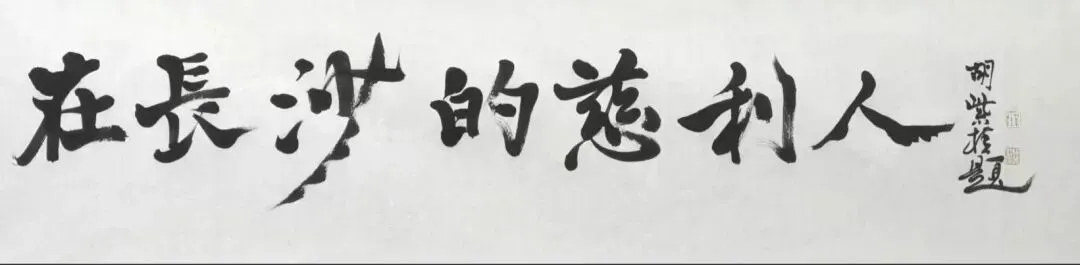 在長沙的慈利人
胡紫桂題